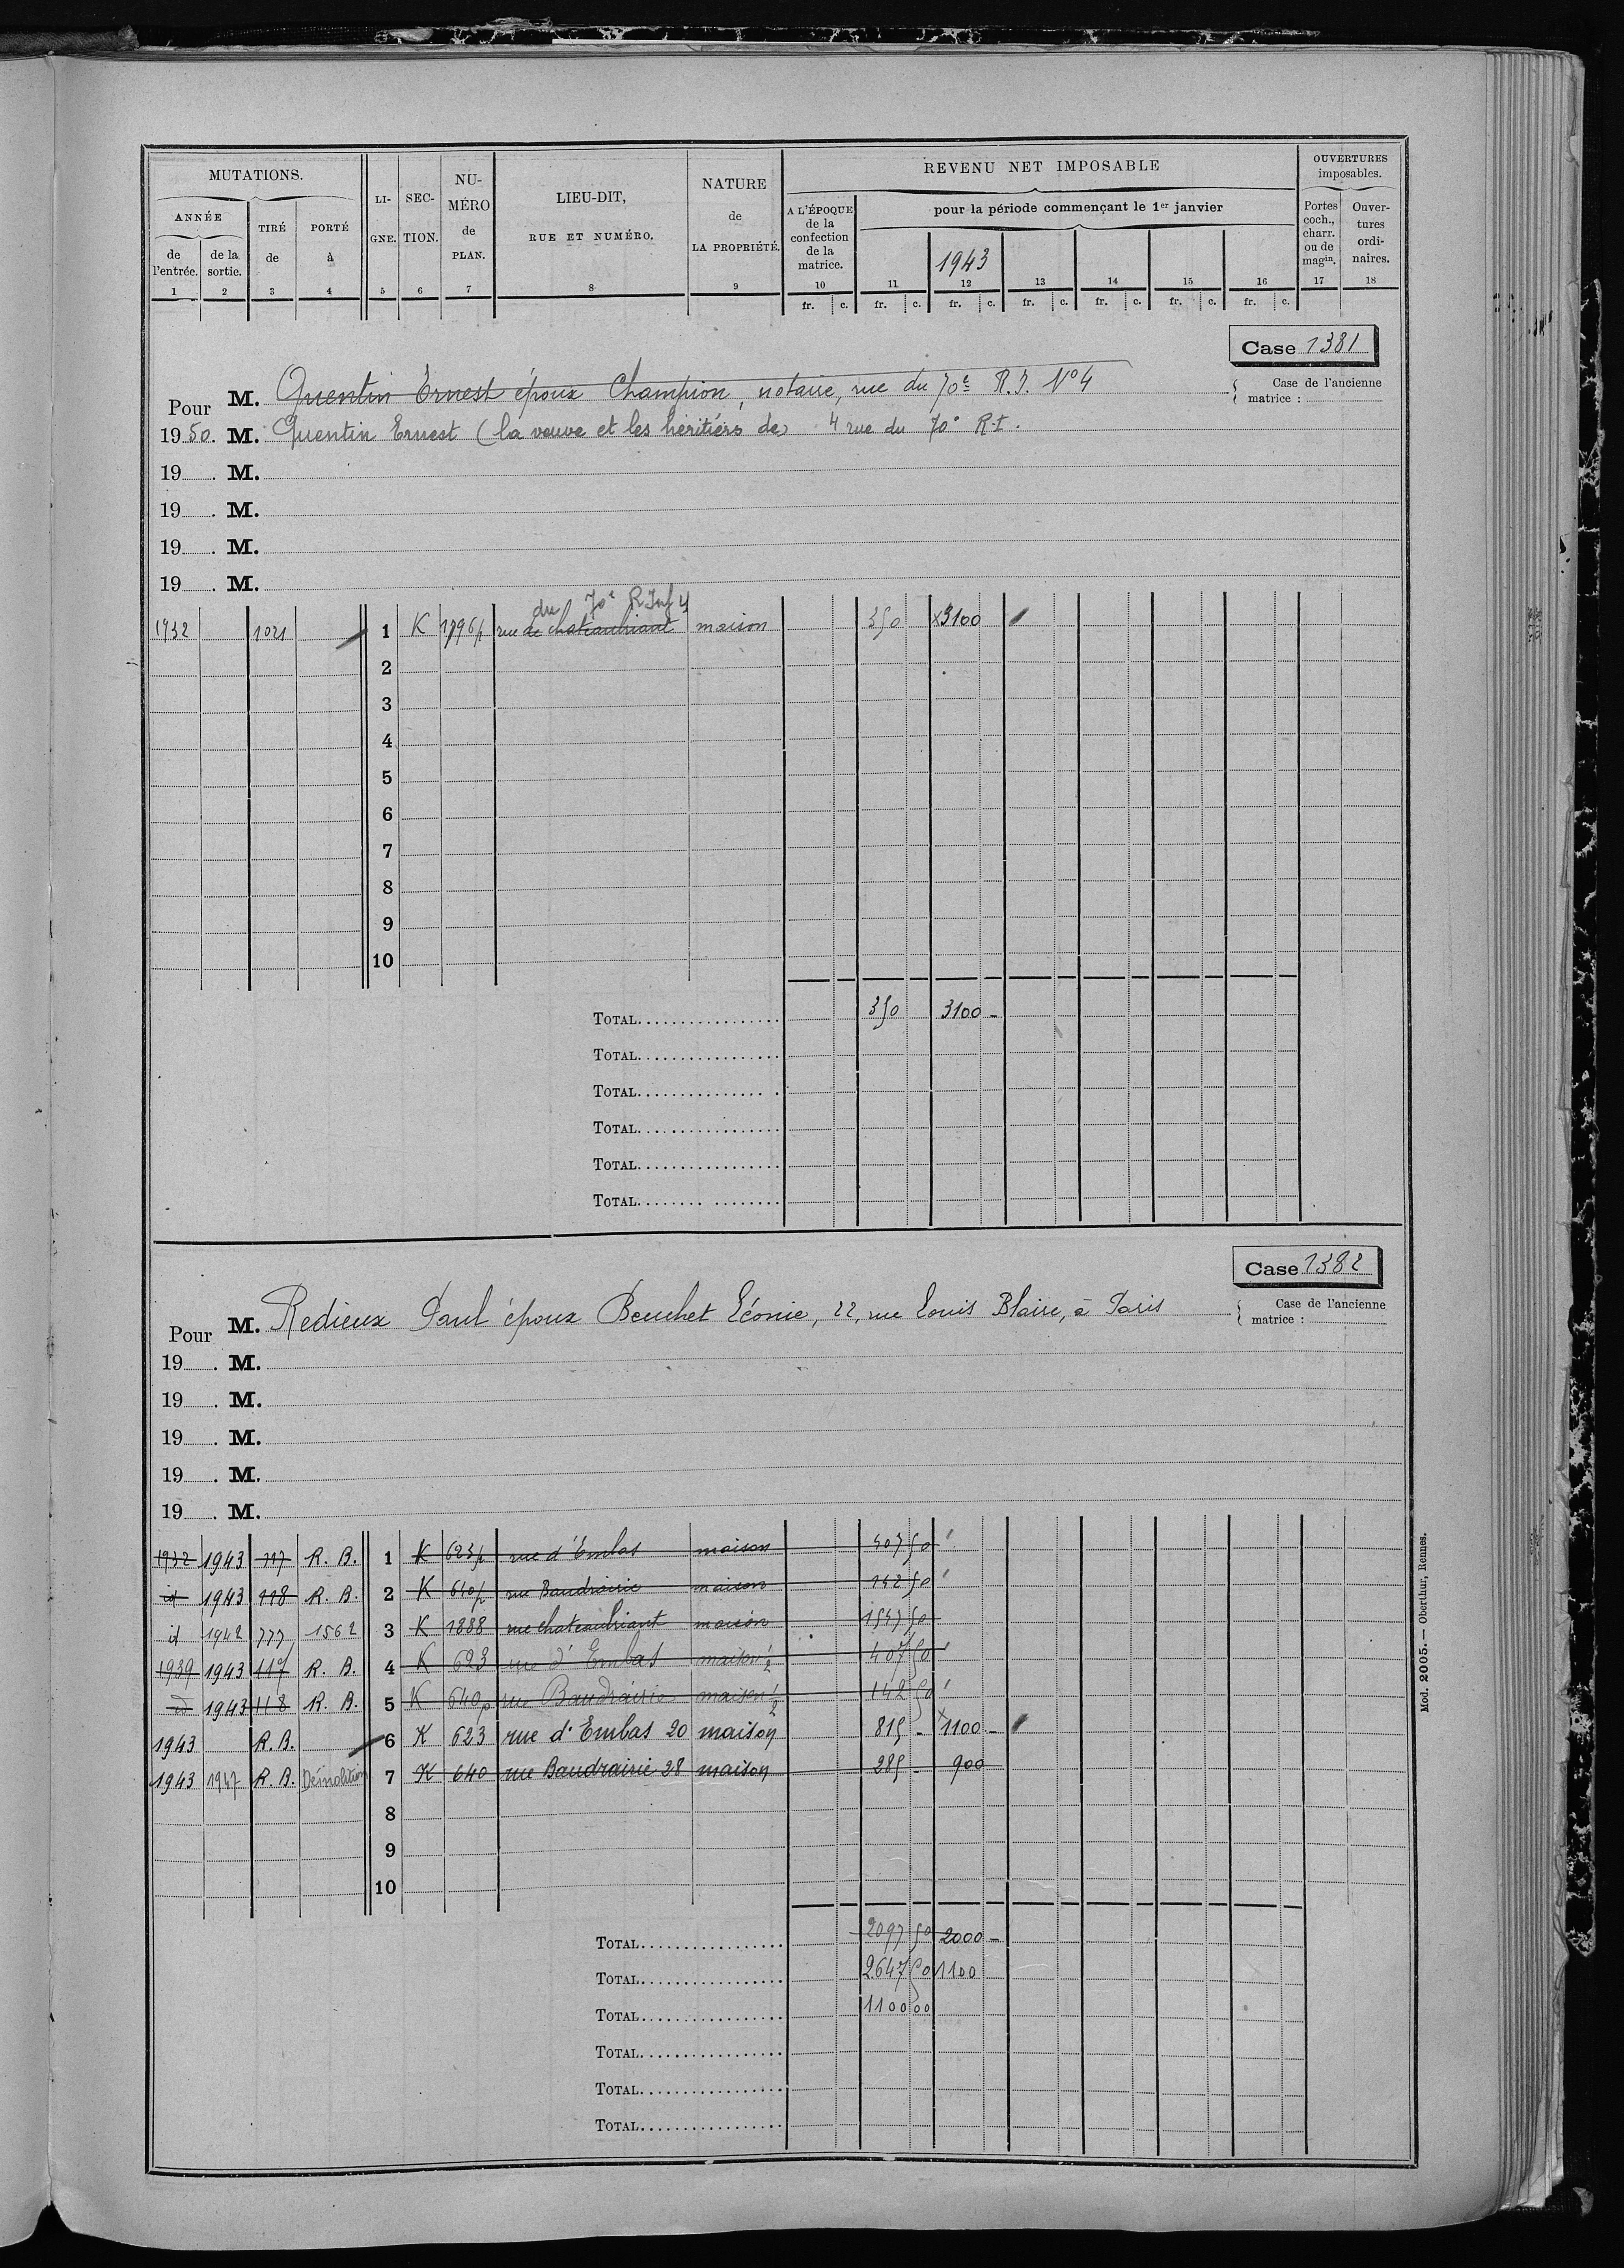 MUTATIONS. LI- SEC- NU- LIEU-DIT, NATURE REVENU NET IMPOSABLE OUVERTURES
ANNÉE TIRÉ PORTÉ GNE. TION. MÉRO RUE ET NUMÉRO. de A L'ÉPOQUE pour la période commençant le 1er janvier imposables.
de de la de à de LA PROPRIÉTÉ. de la Portes Ouver-
l'entrée. sortie. PLAN. confection coch., tures
de la 1943 charr. ordi-
matrice. ou de naires.
magin.
1 2 3 4 5 6 7 8 9 10 11 12 13 14 15 16 17 18
fr. c. fr. c. fr. c. fr. c. fr. c. fr. c. fr. c.
Case 1381
Pour M. Quentin Ernest époux Champion, notaire, rue du 70e R.I. No 4 Case de l'ancienne
matrice :
1950. M. Quentin Ernest (la veuve et les héritiers de) 4 rue du 70e R.I.
19 . M.
19 . M.
19 . M.
19 . M.
du 70e R Inf 4
1932 1021 1 K 1896p rue de chateaubriant maison 350 x3100
2
3
4
5
6
7
8
9
10
TOTAL 350 3100 -
TOTAL
TOTAL
TOTAL
TOTAL
TOTAL
Case 1382
Pour M. Redieux Paul époux Beuchet Léonie, 22, rue Louis Blaire, à Paris Case de l'ancienne
matrice :
19 . M.
19 . M.
19 . M.
19 . M.
19 . M.
1932 1943 117 R. B. 1 K 623p rue d'Embas maison 407 50
id 1943 118 R. B. 2 K 640p rue Baudrairie maison 142 50
id 1942 777 1562 3 K 1888 rue chateaubriant maison 1547 50
1939 1943 117 R. B. 4 K 623 rue d'Embas maison 1/2 407 50
id 1943 118 R. B. 5 K 640p rue Baudrairie maison 1/2 142 50
1943 R. B. 6 K 623 rue d'Embas 20 maison 815 - x1100 -
1943 1947 R. B. Démolition 7 K 640 rue Baudrairie 28 maison 285 - 900
8
9
10
TOTAL 2097 50 2000 -
TOTAL 2647 50 1100
TOTAL 1100 00
TOTAL
TOTAL
TOTAL
Mod. 2005. — Oberthur, Rennes.